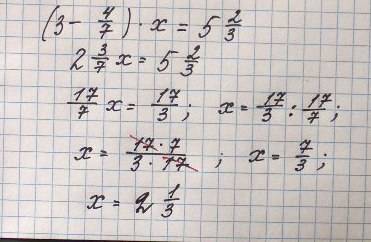 (3 - 4/7) · x = 5 2/3
2 3/7 x = 5 2/3
17/7 x = 17/3 ; x = 17/3 : 17/7 ;
x = 17 · 7 / 3 · 17 ; x = 7/3 ;
x = 2 1/3